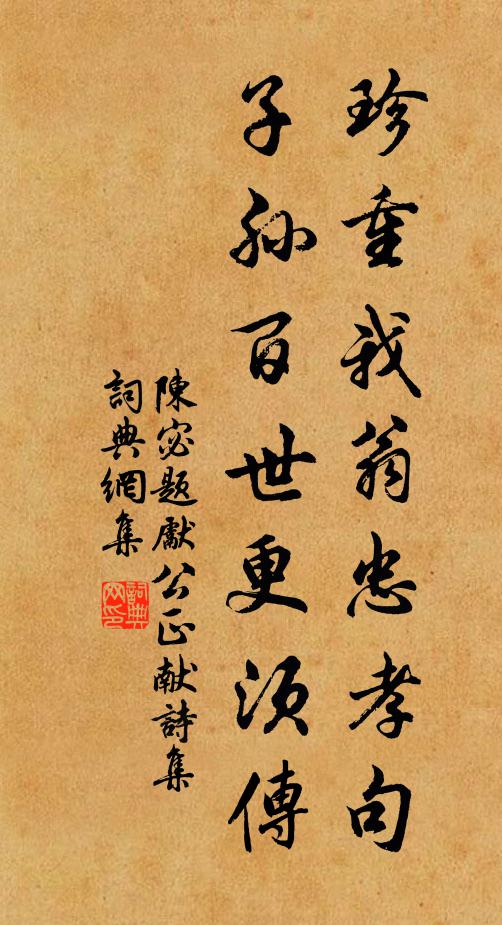 珍重我翁忠孝句
子孫百世更須傳
陳宓題獻公正献詩集
詞典網集
詞典网印